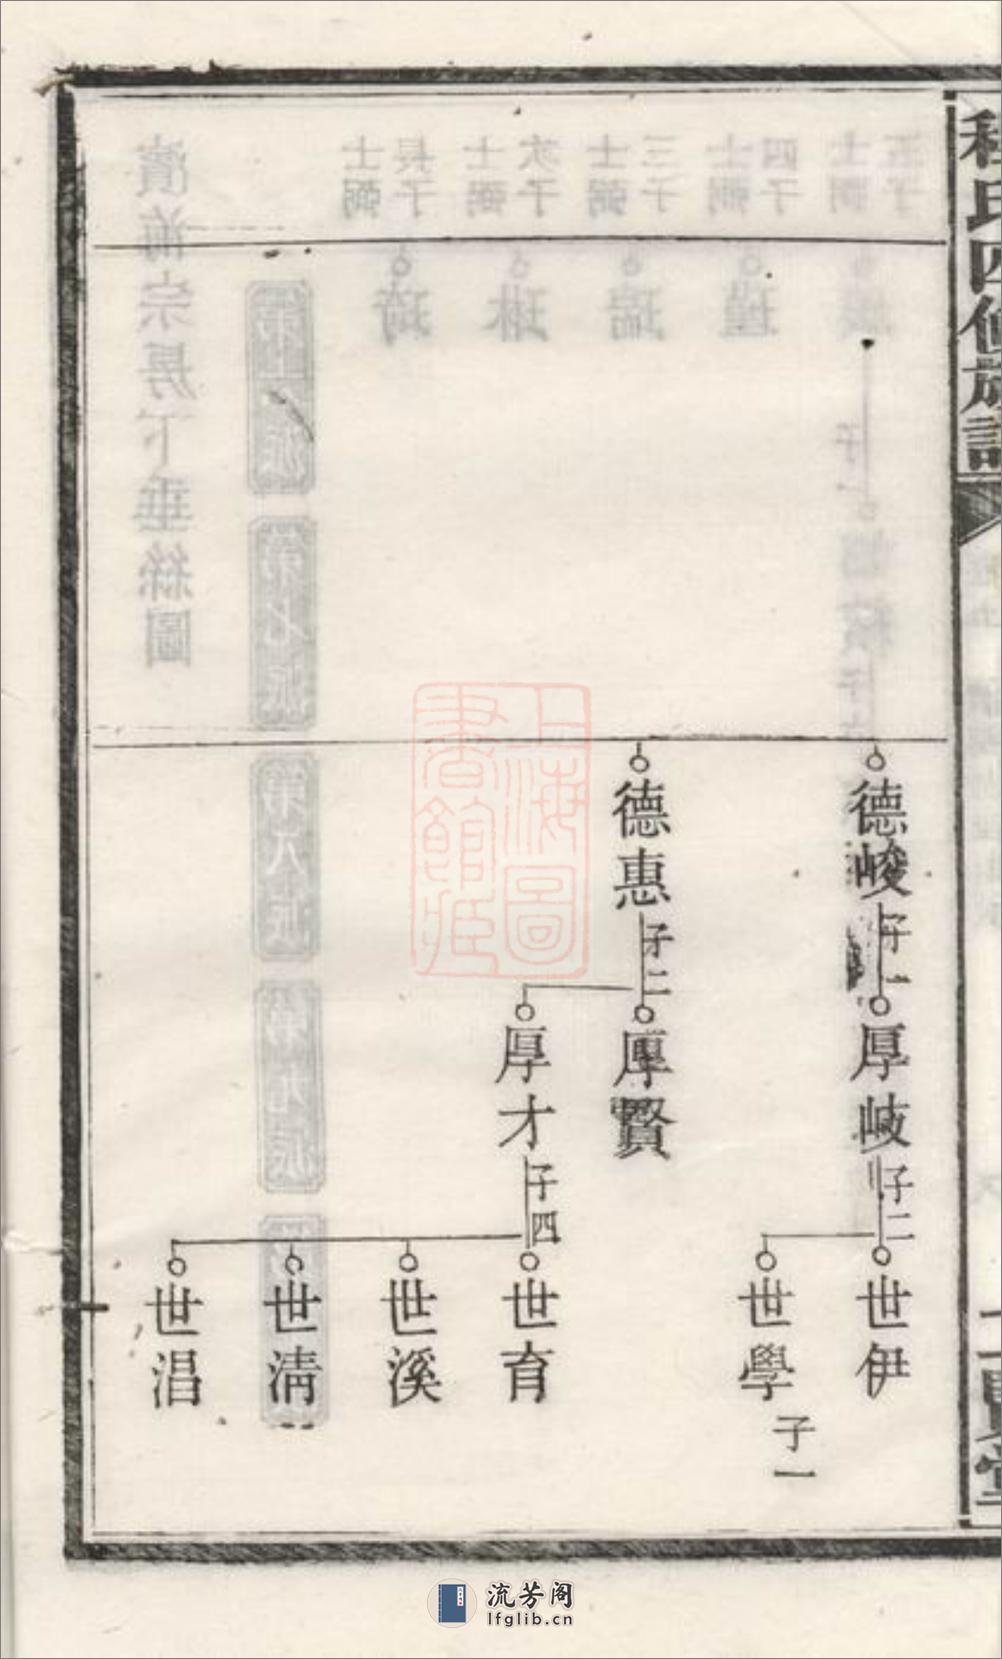 程氏四修族譜
二賢堂
德峻
子一
厚岐
子二
世伊
世學
子一
德惠
子二
厚賢
厚才
子四
世育
世溪
世清
世淐
上海圖書館藏
流芳阁
lfglib.cn